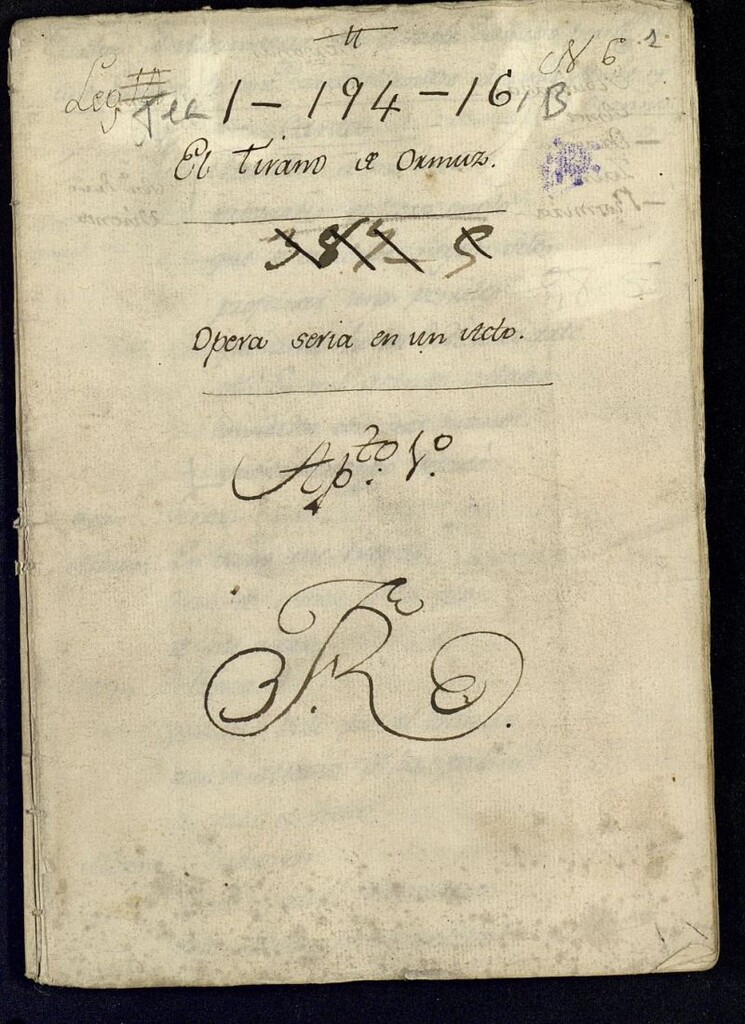 N 6 1
Leg
Tea 1-194-16, B
El Tirano de Ormuz.
Opera seria en un Acto.
Ap.to 1.o